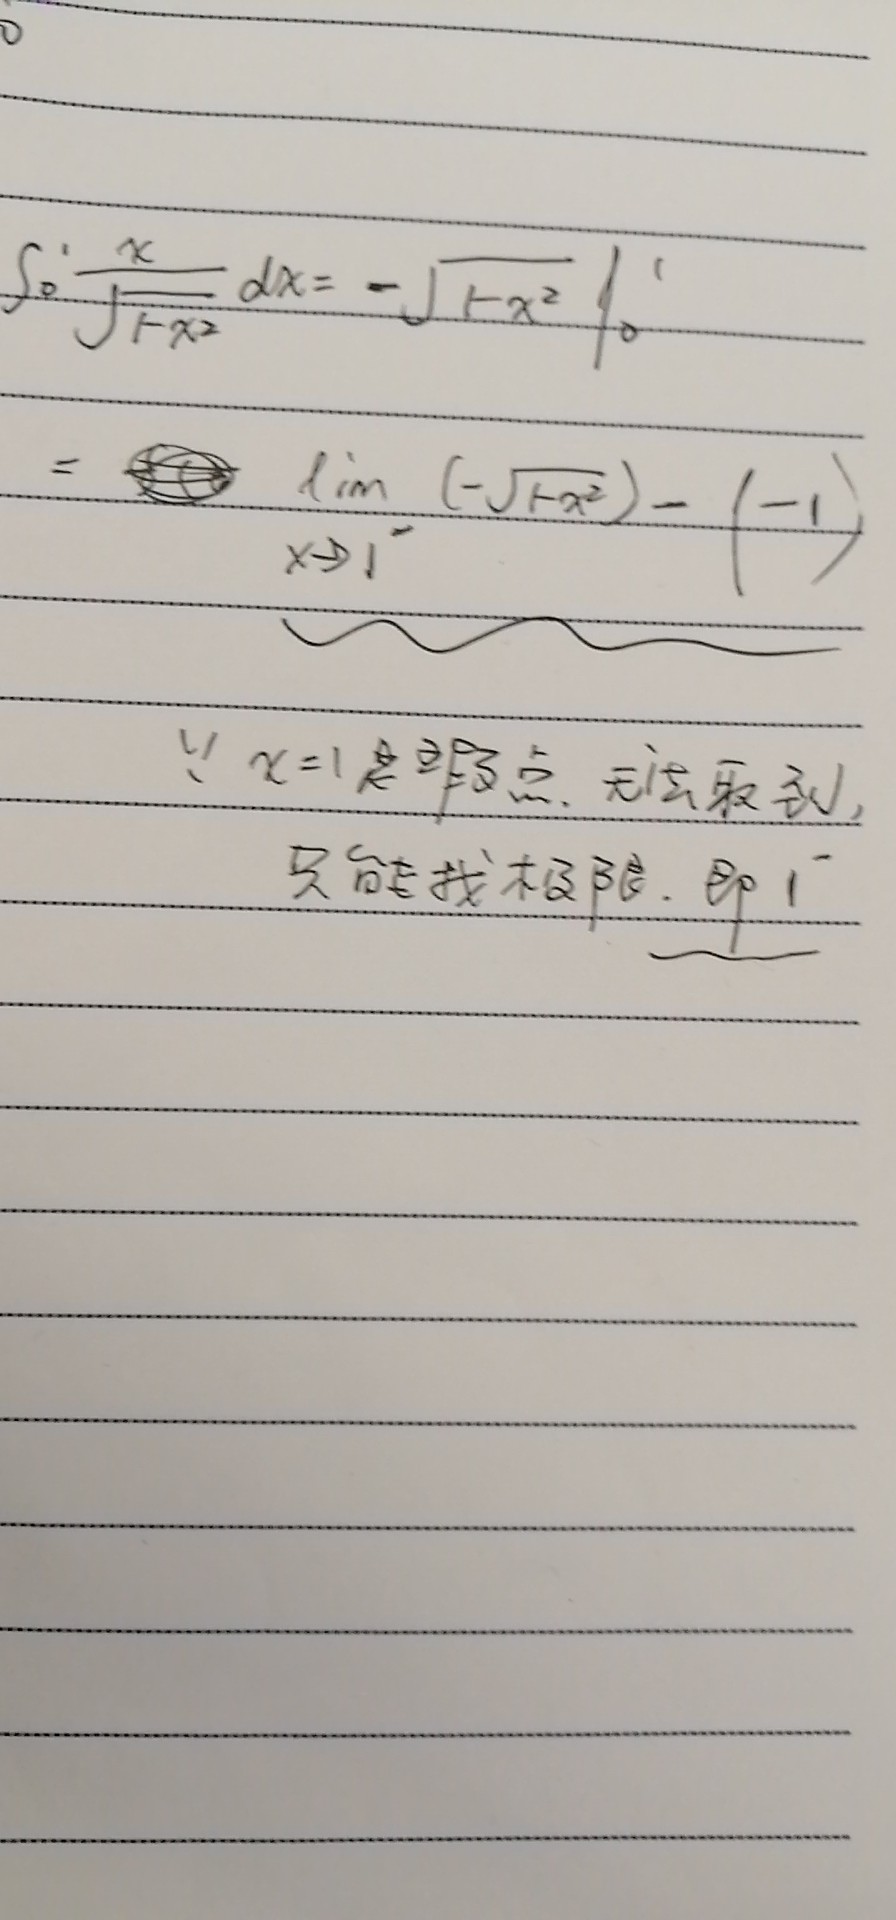 ∫₀¹ x/√(1-x²) dx = -√(1-x²) |₀¹
= lim x→1⁻ (-√(1-x²)) - (-1)
∵ x=1是瑕点.无法取到,
只能找极限.即1⁻